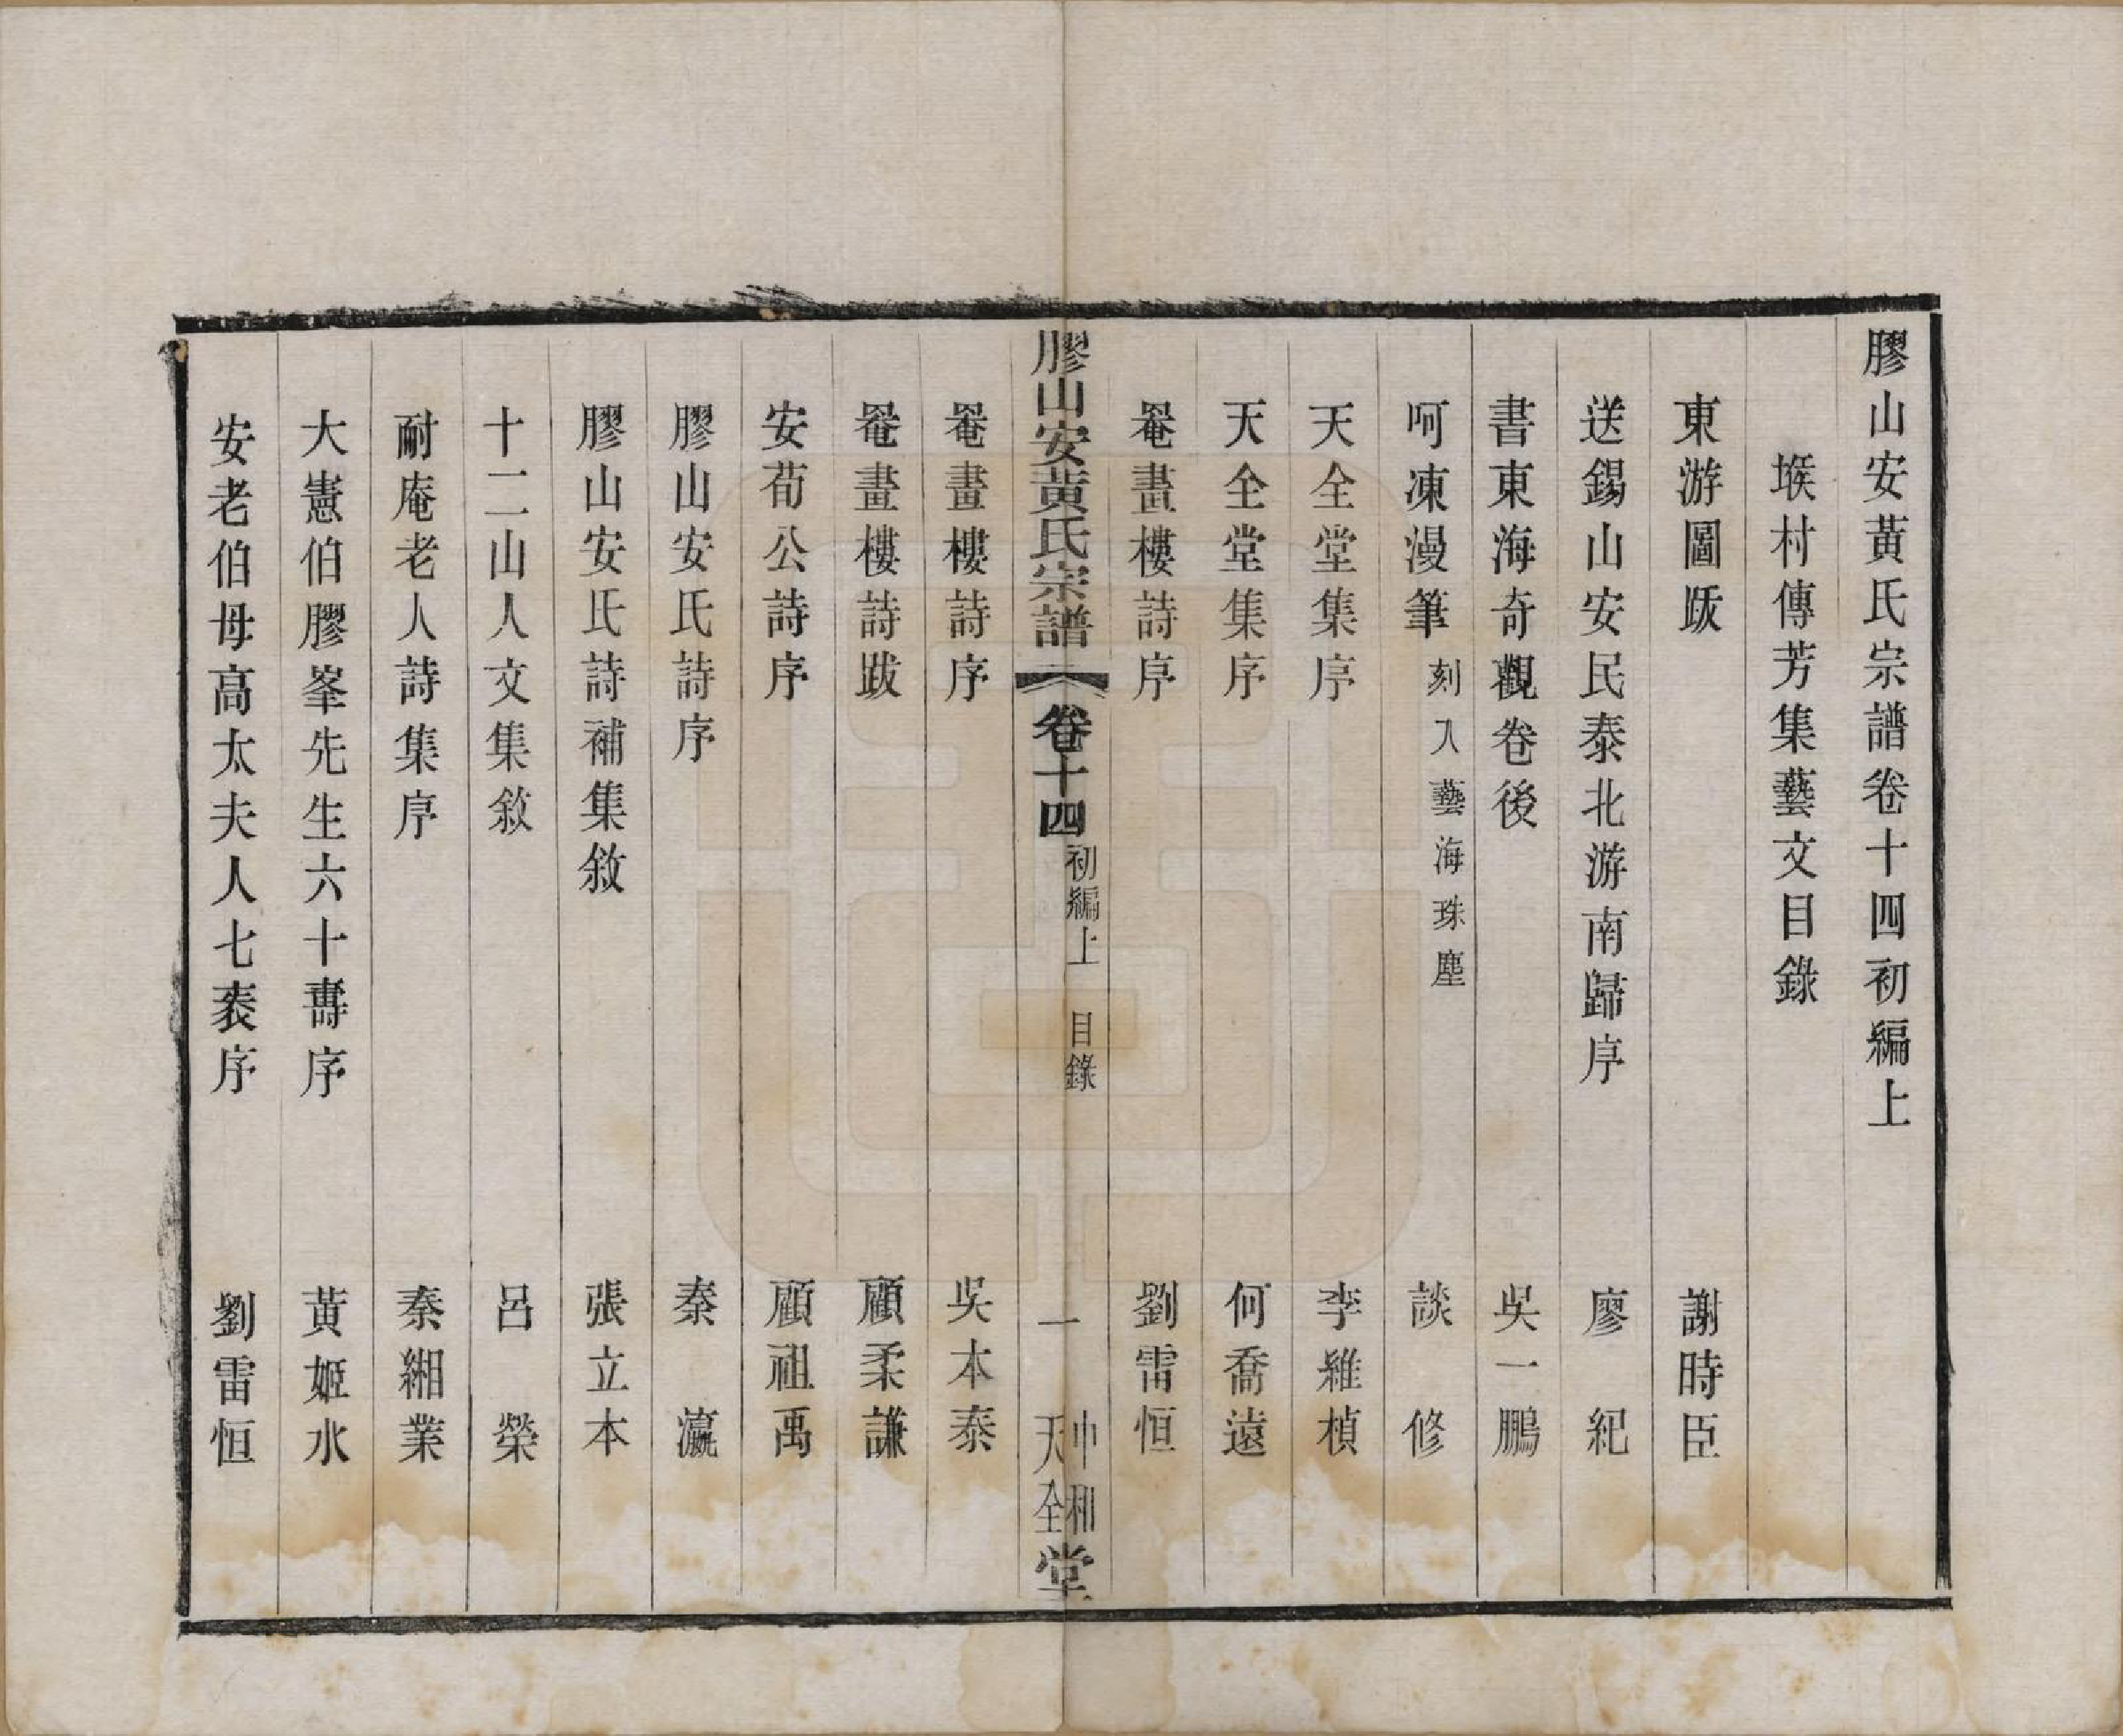 膠山安黃氏宗譜卷十四初編上
堠村傳芳集藝文目錄
東游圖䟦 謝時臣
送錫山安民泰北游南歸序 廖 紀
書東海奇觀卷後 吳一鵬
呵凍漫筆 刻入藝海珠塵 談 修
天全堂集序 李維楨
天全堂集序 何喬遠
罨畫樓詩序 劉雷恒
膠山安黃氏宗譜 卷十四 初編上 目錄 一 中和天全堂
罨畫樓詩序 吳本泰
罨畫樓詩跋 顧柔謙
安荀公詩序 顧祖禹
膠山安氏詩序 秦 瀛
膠山安氏詩補集敘 張立本
十二山人文集敘 呂 榮
耐庵老人詩集序 秦緗業
大憲伯膠峯先生六十壽序 黄姬水
安老伯母高太夫人七袠序 劉雷恒